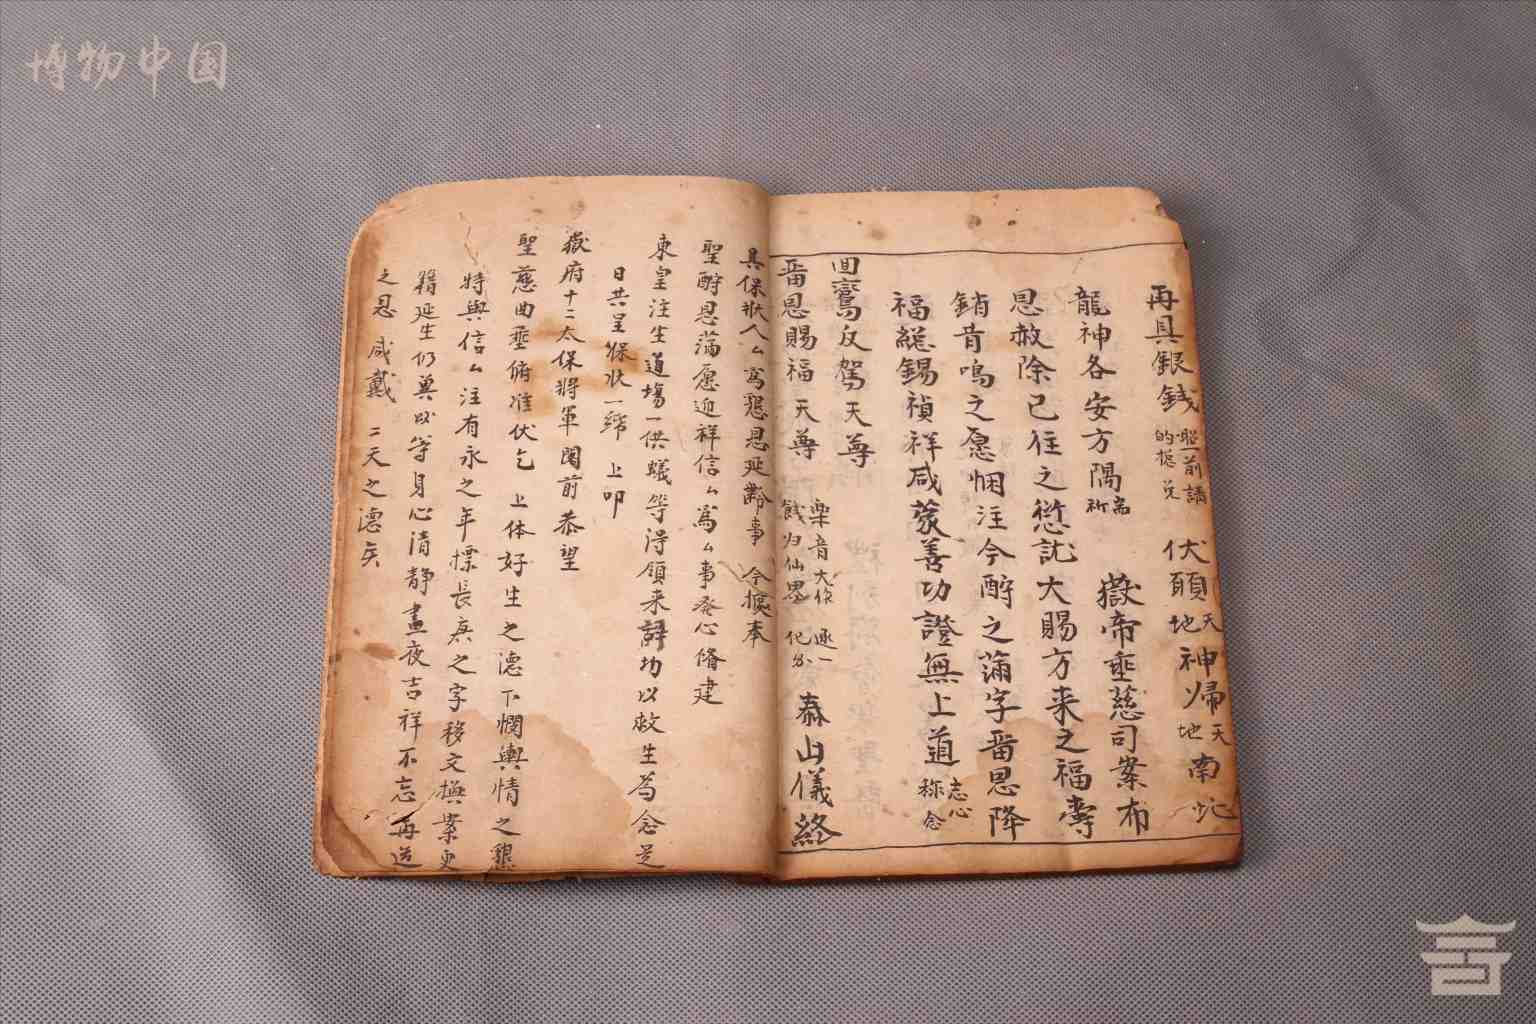 博物中国
再具銀錢 照前誦的握兌 伏願天地神歸天地南
龍神各安方隅 嶽帝垂慈司案布
恩赦除已往之愆訧大賜方来之福壽
銷昔鳴之愿悃注今酧之蒲字畱恩降
福総錫禎祥咸荗善功證無上道 志心称念
回鸞反駕天尊 樂音大作 逐一
畱恩賜福天尊 餞归仙界 化分 泰山儀終
具保狀人厶寫懇恩延齡事 今據本
聖酧恩蒲愿迎祥信厶為厶事發心脩建
東皇注生道場一供蟻等淂領来詞切以敕生為念是
日共呈保狀一 上叩
嶽府十二太保將軍閣前恭望
聖慈曲垂俯准伏乞 上体好生之德下憫輿情之懇
特與信厶注有永之年標長庚之字移文槓案更
籍延生仍兾以等身心清静晝夜吉祥不忘再造
之恩 咸戴 二天之德矣